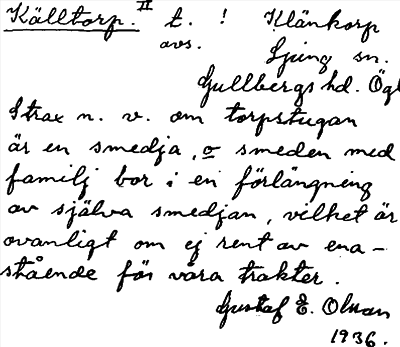 Källtorp. II t. ! Klänkorp
avs. Ljung sn.
Gullbergs hd. Ögl
Strax n. v. om torpstugan
är en smedja, o smeden med
familj bor i en förlängning
av själva smedjan, vilket är
ovanligt om ej rent av ena-
stående för våra trakter.
Gustaf E. Olsson
1936.